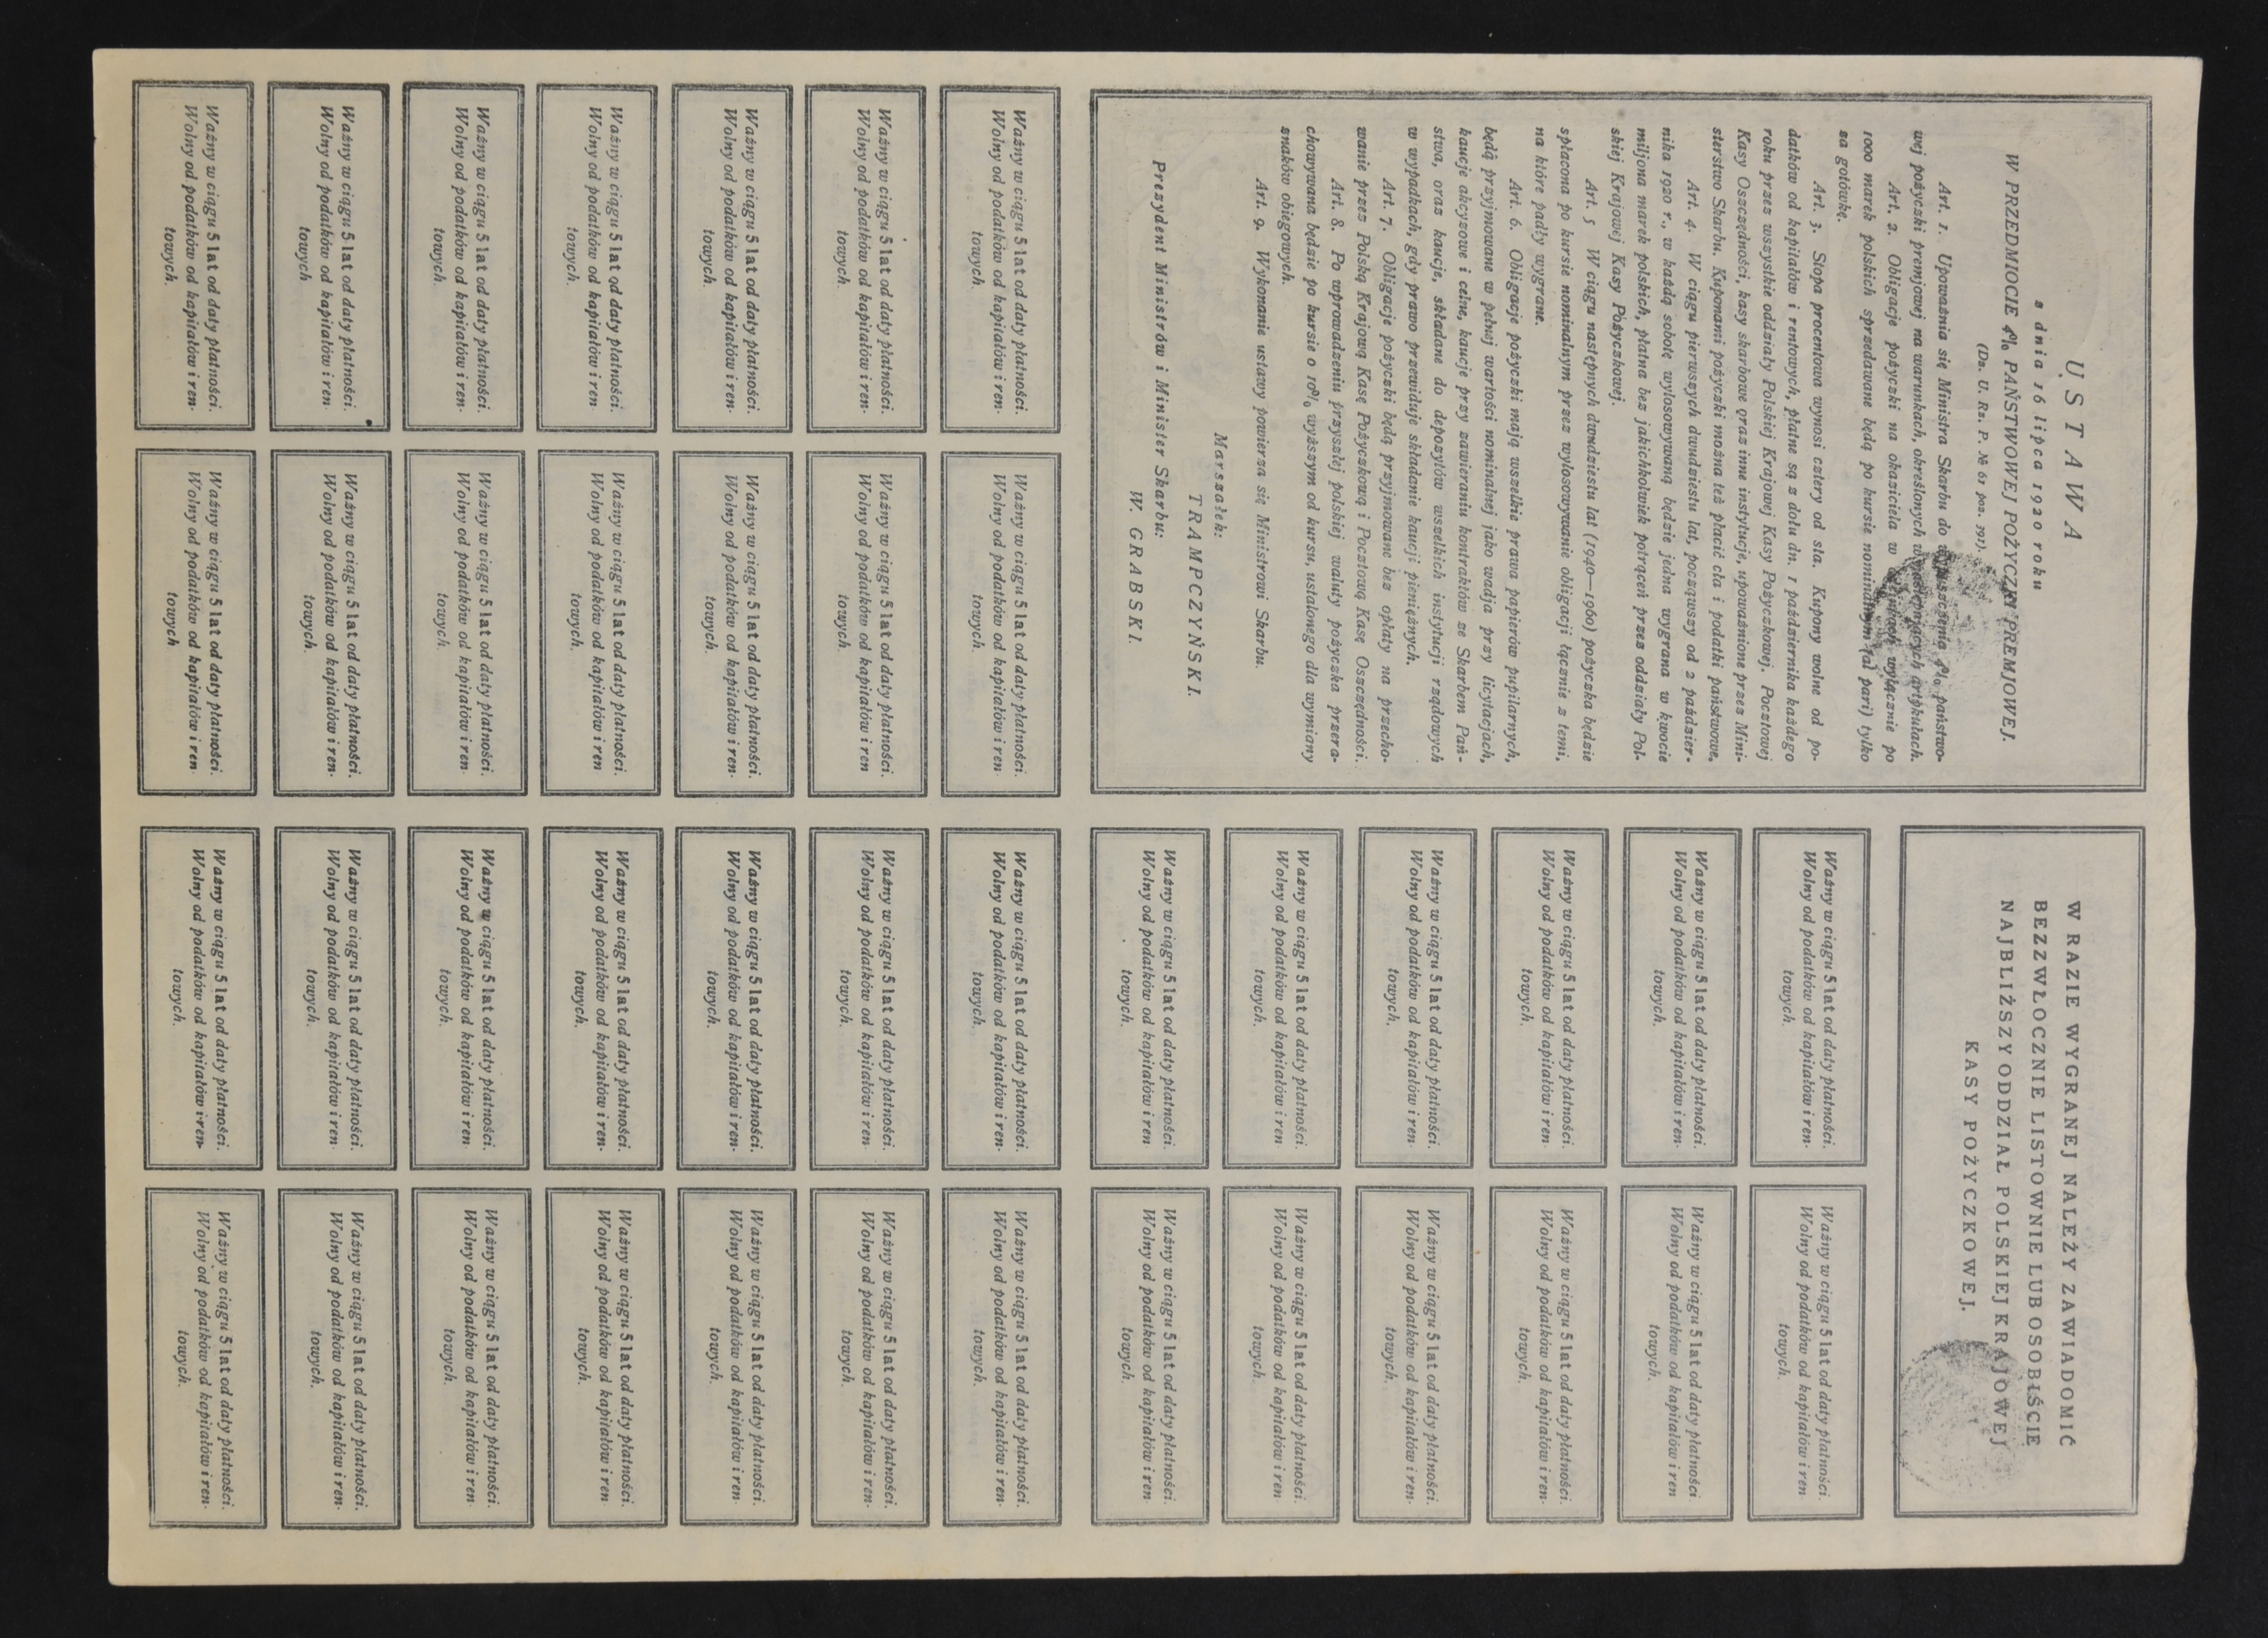 USTAWA
z dnia 16 lipca 1920 roku
W PRZEDMIOCIE 4% PAŃSTWOWEJ POŻYCZKI PREMJOWEJ.
(Dz. U. Rz. P. № 61 poz. 391).
Art. 1. Upoważnia się Ministra Skarbu do wypuszczenia 4% państwo-
wej pożyczki premjowej na warunkach, określonych w następujących artykułach.
Art. 2. Obligacje pożyczki na okaziciela w odcinkach wyłącznie po
1000 marek polskich sprzedawane będą po kursie nominalnym (al pari) tylko
za gotówkę.
Art. 3. Stopa procentowa wynosi cztery od sta. Kupony wolne od po-
datków od kapitałów i rentowych, płatne są z dołu dn. 1 października każdego
roku przez wszystkie oddziały Polskiej Krajowej Kasy Pożyczkowej. Pocztowej
Kasy Oszczędności, kasy skarbowe oraz inne instytucje, upoważnione przez Mini-
sterstwo Skarbu. Kuponami pożyczki można też płacić cła i podatki państwowe.
Art. 4. W ciągu pierwszych dwudziestu lat, począwszy od 2 paździer-
nika 1920 r., w każdą sobotę wylosowywaną będzie jedna wygrana w kwocie
miljona marek polskich, płatna bez jakichkolwiek potrąceń przez oddziały Pol-
skiej Krajowej Kasy Pożyczkowej.
Art. 5 W ciągu następnych dwudziestu lat (1940—1960) pożyczka będzie
spłacona po kursie nominalnym przez wylosowywanie obligacji łącznie z temi,
na które padły wygrane.
Art. 6. Obligacje pożyczki mają wszelkie prawa papierów pupilarnych,
będą przyjmowane w pełnej wartości nominalnej jako wadja przy licytacjach,
kaucje akcyzowe i celne, kaucje przy zawieraniu kontraktów ze Skarbem Pań-
stwa, oraz kaucje, składane do depozytów wszelkich instytucji rządowych
w wypadkach, gdy prawo przewiduje składanie kaucji pieniężnych.
Art. 7. Obligacje pożyczki będą przyjmowane bez opłaty na przecho-
wanie przez Polską Krajową Kasę Pożyczkową i Pocztową Kasę Oszczędności.
Art. 8. Po wprowadzeniu przyszłej polskiej waluty pożyczka przera-
chowywana będzie po kursie o 10% wyższym od kursu, ustalonego dla wymiany
znaków obiegowych.
Art. 9. Wykonanie ustawy powierza się Ministrowi Skarbu.
Marszałek:
TRAMPCZYŃSKI.
Prezydent Ministrów i Minister Skarbu:
W. GRABSKI.
W RAZIE WYGRANEJ NALEŻY ZAWIADOMIĆ
BEZZWŁOCZNIE LISTOWNIE LUB OSOBIŚCIE
NAJBLIŻSZY ODDZIAŁ POLSKIEJ KRAJOWEJ
KASY POŻYCZKOWEJ.
Ważny w ciągu 5 lat od daty płatności.
Wolny od podatków od kapitałów i ren-
towych.
Ważny w ciągu 5 lat od daty płatności.
Wolny od podatków od kapitałów i ren
towych.
Ważny w ciągu 5 lat od daty płatności.
Wolny od podatków od kapitałów i ren-
towych.
Ważny w ciągu 5 lat od daty płatności
Wolny od podatków od kapitałów i ren
towych.
Ważny w ciągu 5 lat od daty płatności.
Wolny od podatków od kapitałów i ren-
towych.
Ważny w ciągu 5 lat od daty płatności.
Wolny od podatków od kapitałów i ren-
towych.
Ważny w ciągu 5 lat od daty płatności.
Wolny od podatków od kapitałów i ren-
towych.
Ważny w ciągu 5 lat od daty płatności.
Wolny od podatków od kapitałów i ren-
towych.
Ważny w ciągu 5 lat od daty płatności.
Wolny od podatków od kapitałów i ren
towych.
Ważny w ciągu 5 lat od daty płatności.
Wolny od podatków od kapitałów i ren
towych.
Ważny w ciągu 5 lat od daty płatności.
Wolny od podatków od kapitałów i ren-
towych.
Ważny w ciągu 5 lat od daty płatności.
Wolny od podatków od kapitałów i ren-
towych.
Ważny w ciągu 5 lat od daty płatności.
Wolny od podatków od kapitałów i ren-
towych.
Ważny w ciągu 5 lat od daty płatności.
Wolny od podatków od kapitałów i ren
towych.
Ważny w ciągu 5 lat od daty płatności.
Wolny od podatków od kapitałów i ren
towych.
Ważny w ciągu 5 lat od daty płatności.
Wolny od podatków od kapitałów i ren-
towych.
Ważny w ciągu 5 lat od daty płatności.
Wolny od podatków od kapitałów i ren
towych.
Ważny w ciągu 5 lat od daty płatności.
Wolny od podatków od kapitałów i ren
towych.
Ważny w ciągu 5 lat od daty płatności.
Wolny od podatków od kapitałów i ren
towych.
Ważny w ciągu 5 lat od daty płatności.
Wolny od podatków od kapitałów i ren-
towych.
Ważny w ciągu 5 lat od daty płatności.
Wolny od podatków od kapitałów i ren-
towych.
Ważny w ciągu 5 lat od daty płatności.
Wolny od podatków od kapitałów i ren-
towych.
Ważny w ciągu 5 lat od daty płatności.
Wolny od podatków od kapitałów i ren-
towych.
Ważny w ciągu 5 lat od daty płatności.
Wolny od podatków od kapitałów i ren-
towych.
Ważny w ciągu 5 lat od daty płatności.
Wolny od podatków od kapitałów i ren-
towych.
Ważny w ciągu 5 lat od daty płatności.
Wolny od podatków od kapitałów i ren
towych.
Ważny w ciągu 5 lat od daty płatności.
Wolny od podatków od kapitałów i ren-
towych.
Ważny w ciągu 5 lat od daty płatności.
Wolny od podatków od kapitałów i ren-
towych.
Ważny w ciągu 5 lat od daty płatności.
Wolny od podatków od kapitałów i ren-
towych.
Ważny w ciągu 5 lat od daty płatności.
Wolny od podatków od kapitałów i ren-
towych.
Ważny w ciągu 5 lat od daty płatności.
Wolny od podatków od kapitałów i ren
towych.
Ważny w ciągu 5 lat od daty płatności.
Wolny od podatków od kapitałów i ren-
towych.
Ważny w ciągu 5 lat od daty płatności.
Wolny od podatków od kapitałów i ren-
towych
Ważny w ciągu 5 lat od daty płatności.
Wolny od podatków od kapitałów i ren-
towych.
Ważny w ciągu 5 lat od daty płatności.
Wolny od podatków od kapitałów i ren
towych.
Ważny w ciągu 5 lat od daty płatności.
Wolny od podatków od kapitałów i ren-
towych.
Ważny w ciągu 5 lat od daty płatności.
Wolny od podatków od kapitałów i ren-
towych.
Ważny w ciągu 5 lat od daty płatności.
Wolny od podatków od kapitałów i ren-
towych
Ważny w ciągu 5 lat od daty płatności.
Wolny od podatków od kapitałów i ren-
towych.
Ważny w ciągu 5 lat od daty płatności.
Wolny od podatków od kapitałów i ren-
towych.